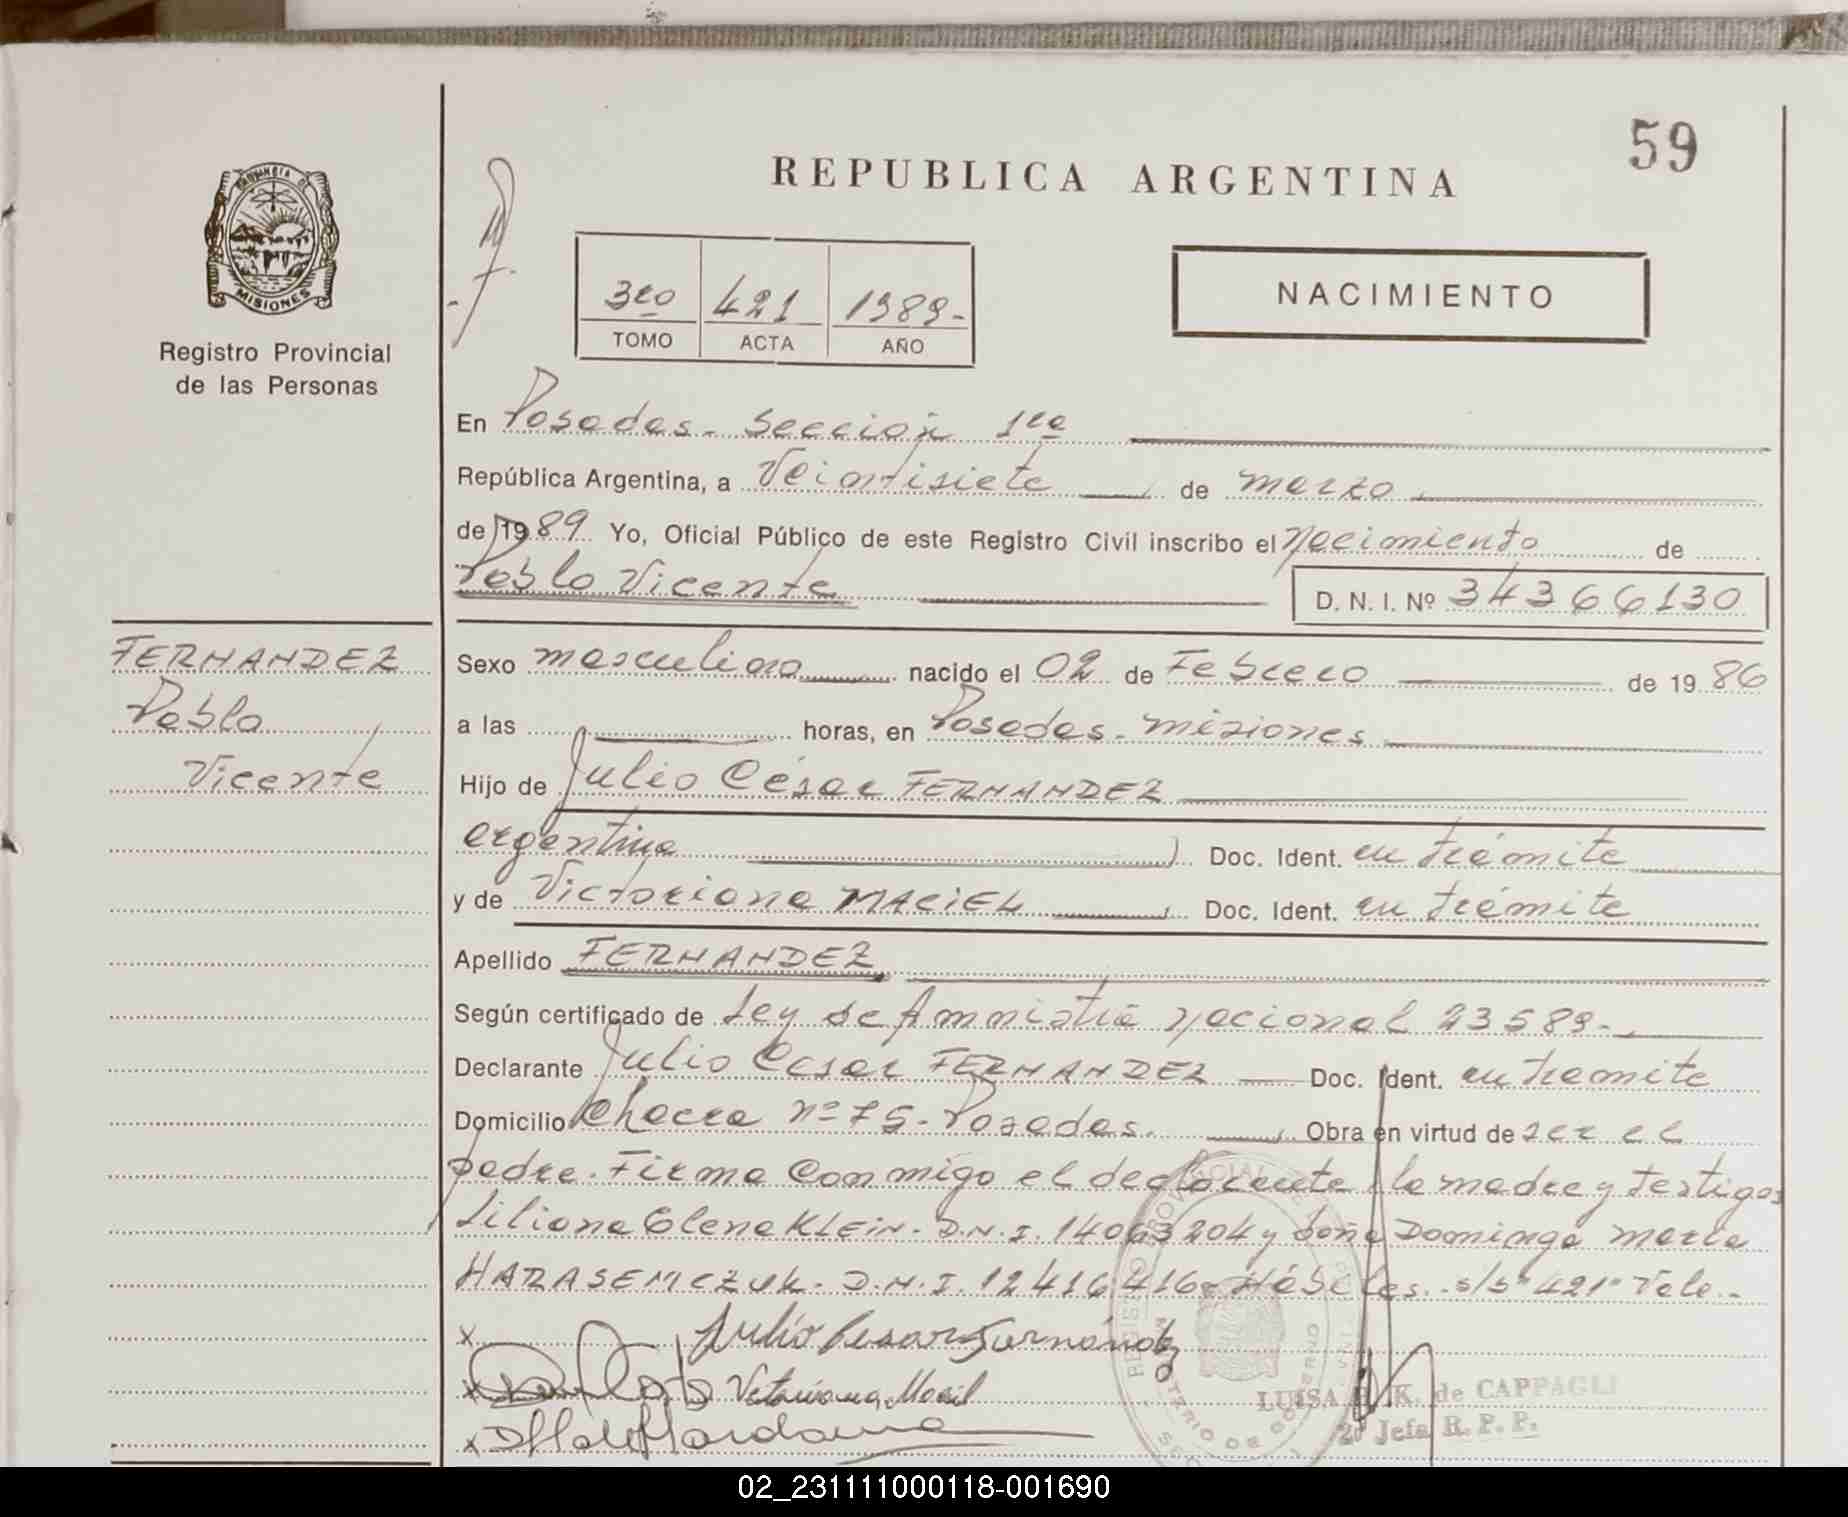 59
REPUBLICA ARGENTINA
PROVINCIA DE
MISIONES
Registro Provincial
de las Personas
3ro 421 1989-
TOMO ACTA AÑO
NACIMIENTO
En Posadas - Sección 1ra
República Argentina, a Veintisiete de marzo
de 1989 Yo, Oficial Público de este Registro Civil inscribo el Nacimiento de
Pablo Vicente D. N. I. Nº 34366130
FERNANDEZ
Pablo
Vicente
Sexo masculino nacido el 02 de Febrero de 1986
a las horas, en Posadas - Misiones
Hijo de Julio César FERNANDEZ
argentina Doc. Ident. en trámite
y de Victoriana MACIEL Doc. Ident. en trámite
Apellido FERNANDEZ
Según certificado de Ley de Amnistía Nacional 23589-
Declarante Julio Cesar FERNANDEZ Doc. Ident. en tramite
Domicilio Chacra nº 75 - Posadas. Obra en virtud de ser el
padre. Firma Conmigo el declarante, la madre y testigos
Liliana Elena KLEIN - D.N.I. 14063204 y doña Dominga María
HARASEMCZUK - D.N.I. 12416416 - Hábiles. s/b "421" Vale -
x Julio Cesar Fernández
x
x
LUISA K. de CAPPAGLI
2º Jefa R. P. P.
02_231111000118-001690